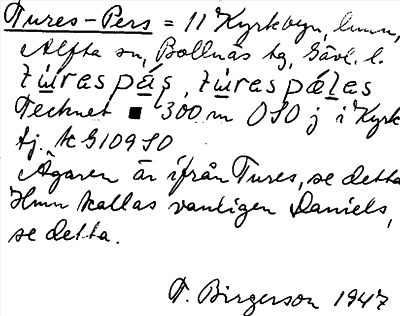 Tures-Pers = 11 Kyrkbyn, hmn,
Alfta sn, Bollnäs tg, Gävl. l.
tu̲respá̲s, tu̲respá̲l̲es
Tecknet ■ 300 m OSO j i Kyrk
bj. k G109 SO
Ägaren är ifrån Tures, se detta
Hmn kallas vanligen Daniels,
se detta.
T. Birgerson 1947